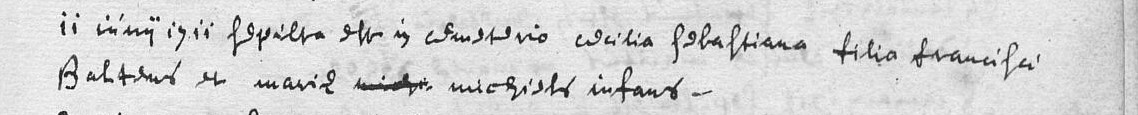 ii iunij 1711 sepulta est in cemeterio cecilia sebastiana filia francisci
Baltens et mariæ michiels infans -